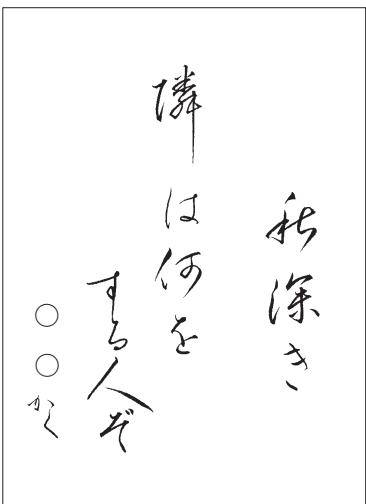 秋深き
隣は何を
する人ぞ
○○かく